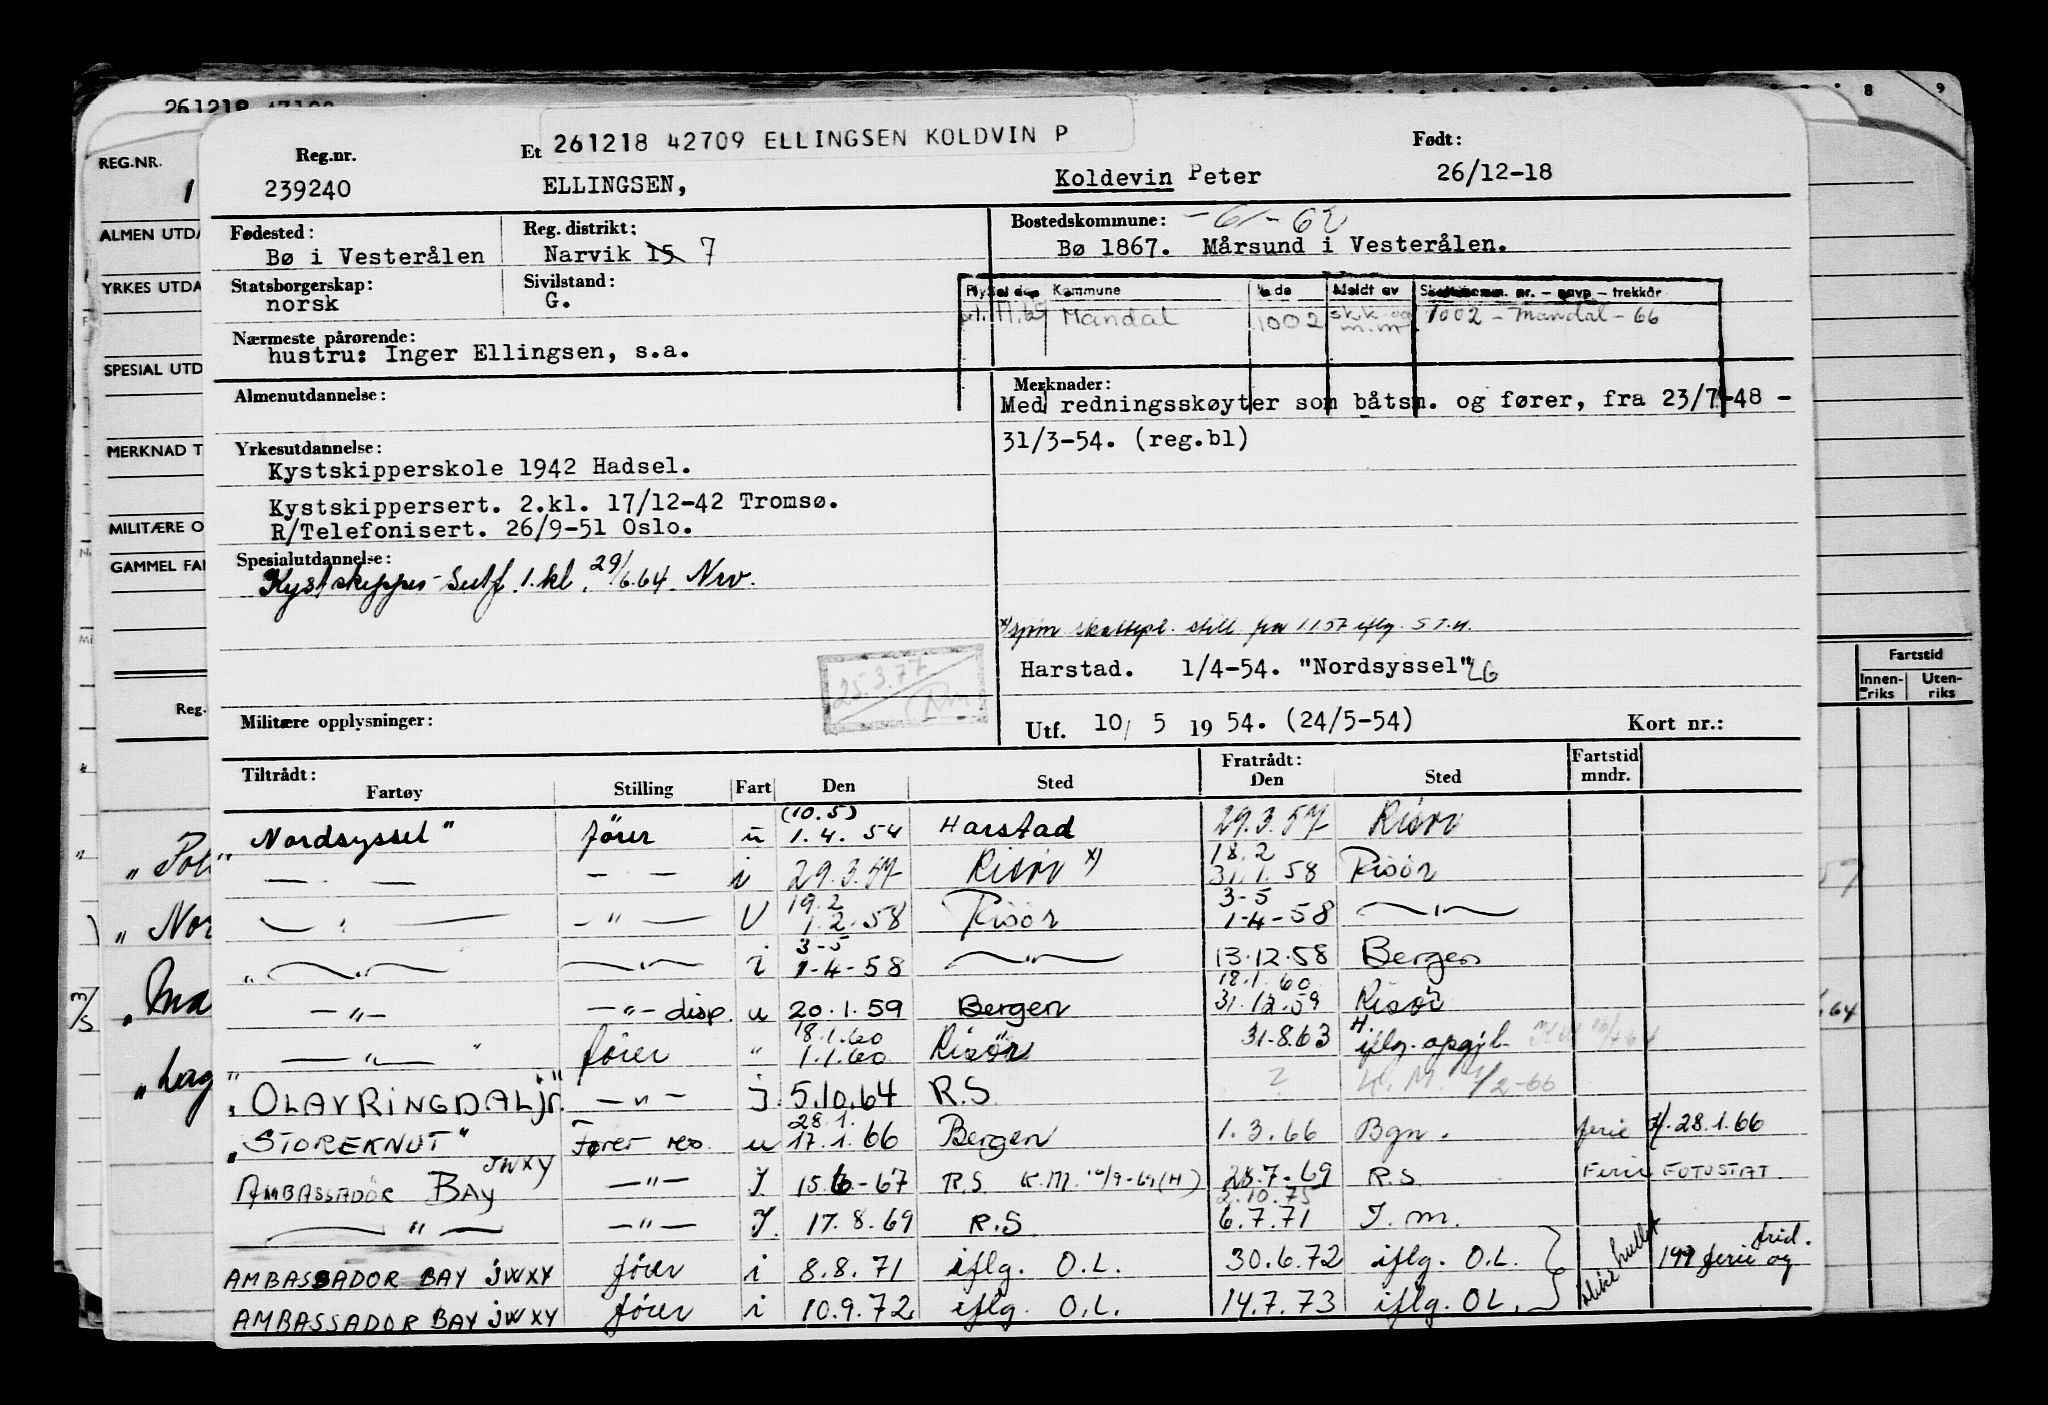 261218 47100
8 9
261218 42709 ELLINGSEN KOLDVIN P
REG.NR. Reg.nr. Et Født:
1 239240 ELLINGSEN, Koldevin Peter 26/12-18
ALMEN UTDA Fødested: Reg. distrikt: Bostedskommune: -61-62
Bø i Vesterålen Narvik 15 7 Bø 1867. Mårsund i Vesterålen.
YRKES UTDA Statsborgerskap: Sivilstand: Kommune Meldt av - navn - trekkår
norsk G. Mandal 1002 sk.k. og m.m 1002 - Mandal - 66
Nærmeste pårørende:
hustru: Inger Ellingsen, s.a.
SPESIAL UTD
Almenutdannelse: Merknader:
Med redningsskøyter som båtsm. og fører, fra 23/7-48 -
MERKNAD T Yrkesutdannelse: 31/3-54. (reg.bl)
Kystskipperskole 1942 Hadsel.
Kystskippersert. 2.kl. 17/12-42 Tromsø.
MILITÆRE O R/Telefonisert. 26/9-51 Oslo.
GAMMEL FAR Spesialutdannelse:
Kystskipper-sertf. 1.kl. 29/6.64. Nrv.
x) skattepl. still. fra 1157 iflg. S.T.H.
25.3.77 Harstad. 1/4-54. "Nordsyssel" LG
Fartstid
Innen-riks Uten-riks
Reg. Militære opplysninger: Utf. 10/ 5 19 54. (24/5-54) Kort nr.:
Tiltrådt: Fratrådt: Fartstid
Fartøy Stilling Fart Den Sted Den Sted mndr.
(10.5)
Nordsyssel" fører u 1.4. 54 Harstad 29.3.57 Risør
18.2
— — — — i 29.3.57 Risør x) 31.1.58 Risør
19.2 3-5
— " — - " — U 1.2.58 Risør 1-4-58 — " —
3-5
„ — " — — " — i 1-4-58 — " — 13.12.58 Bergen
18.1.60
— " — — " — disp. u 20.1.59 Bergen 31.12.59 Risør
18.1.60
— " — fører " 1.1.60 Risør 31.8.63 iflg. oppg.
„OLAV RINGDAL jr." — " — J. 5.10.64 R.S. 2-66
28.1.
„STOREKNUT" Fører res. u 17.1.66 Bergen 1.3.66 Bgn. ferie 28.1.66
AMBASSADØR BAY JWXY — " — J. 15.6-67 R.S. K.M. 16/9-69 (H) 28.7.69 R.S. Ferie FOTOSTAT
2.10.75
— " — — " — J. 17.8.69 R.S. 6.7.71 J.m.
AMBASSADOR BAY JWXY fører i 8.8.71 iflg. O.L. 30.6.72 iflg. O.L. ikke hullet 199 ferie og frid.
AMBASSADOR BAY JWXY fører i 10.9.72 iflg. O.L. 14.7.73 iflg. O.L.
„Pol
„Nor
„Ma
„Lag